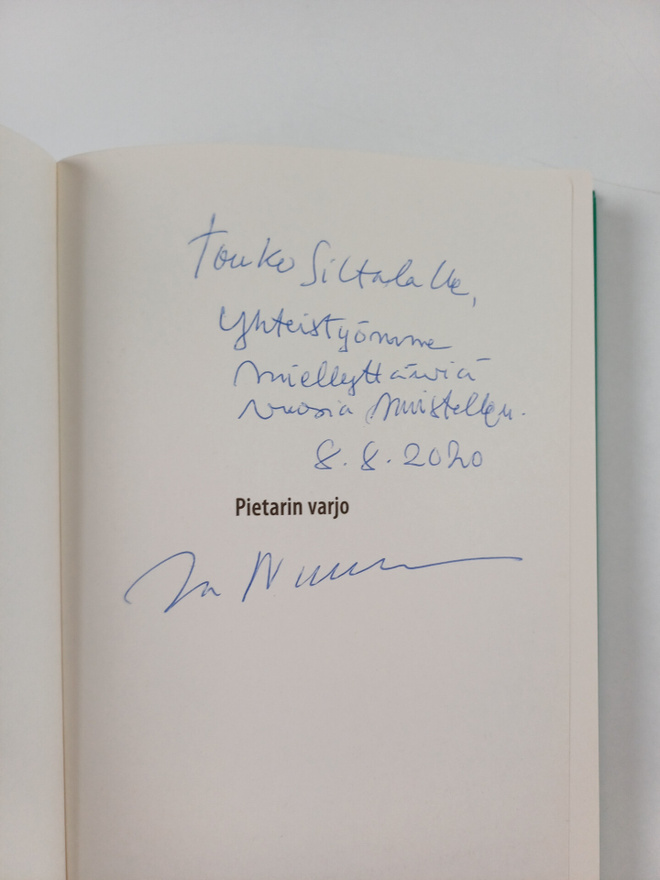 Touko Siltalalle,
Yhteistyömme
miellyttäviä
vuosia muistellen.
8.8.2020
Pietarin varjo